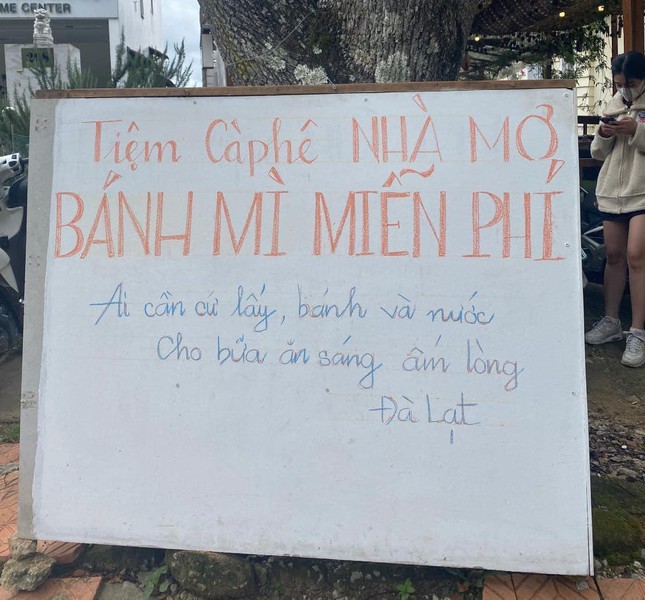 ME CENTER
Tiệm Càphê NHÀ MƠ
BÁNH MÌ MIỄN PHÍ
Ai cần cứ lấy, bánh và nước
Cho bữa ăn sáng ấm lòng
Đà Lạt